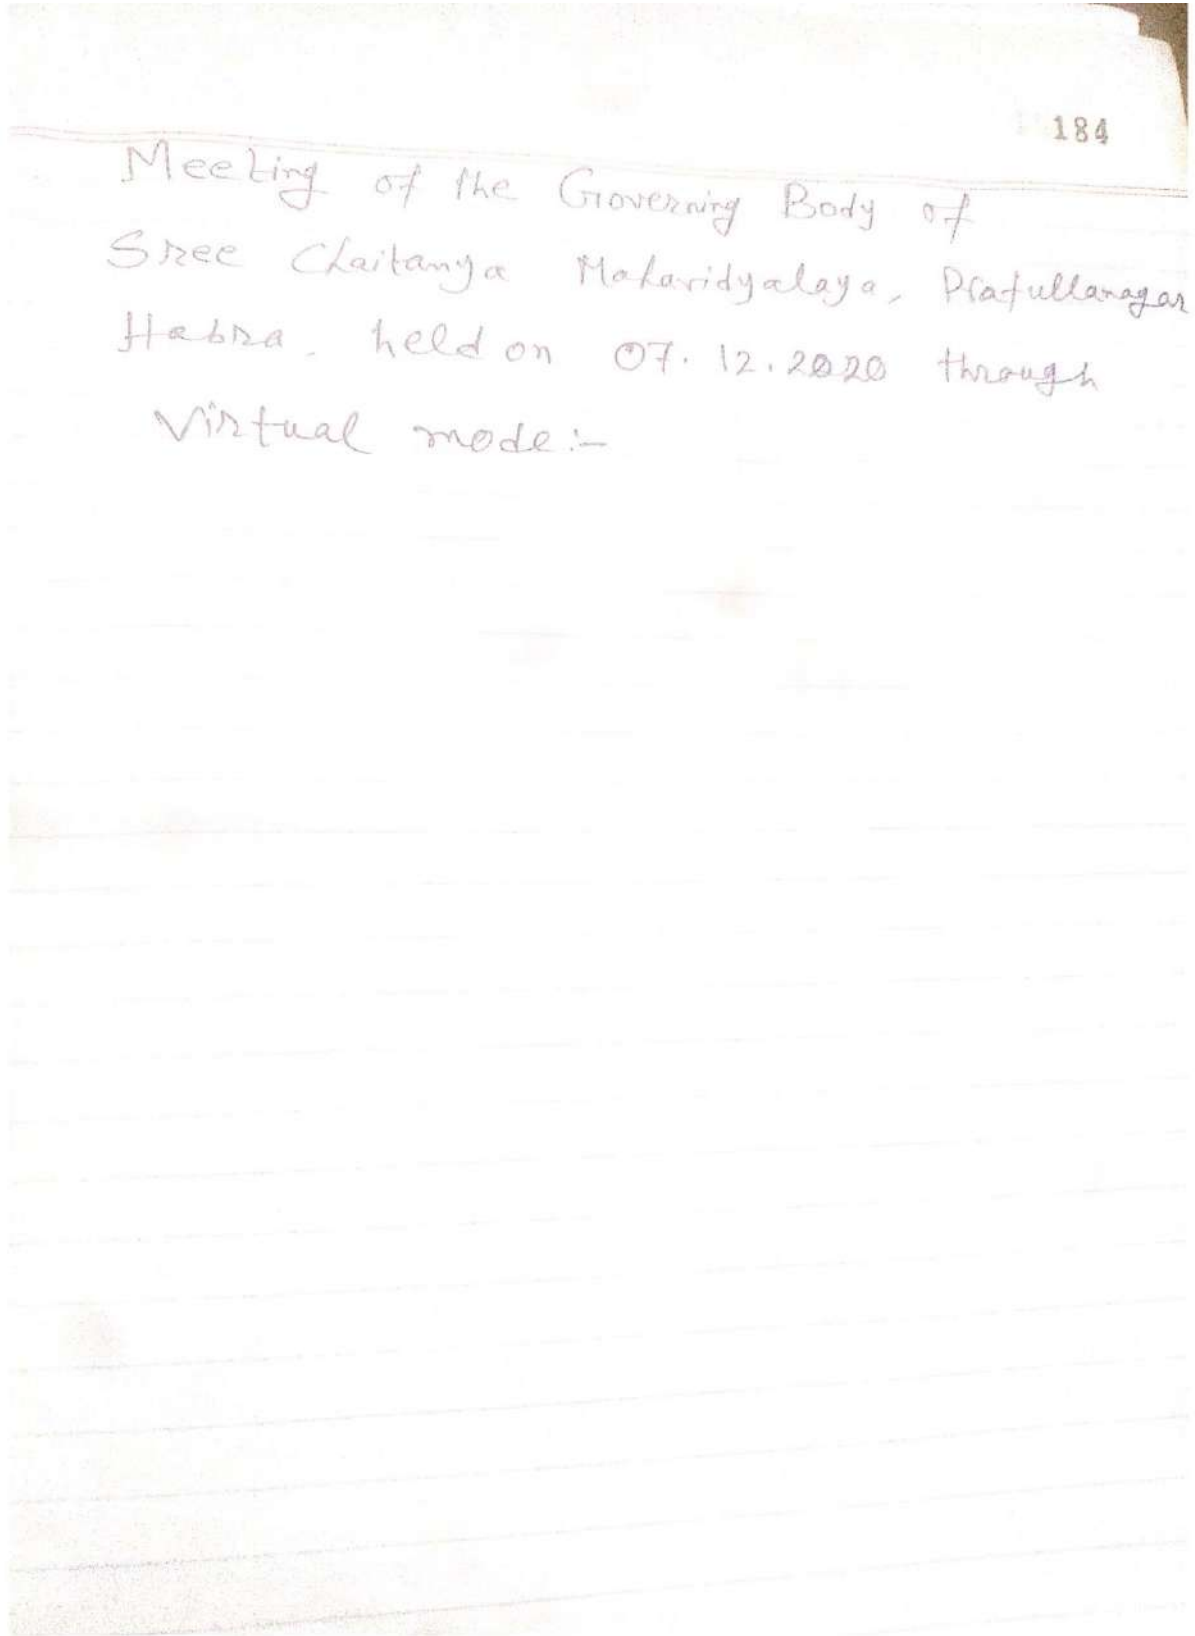 184
Meeting of the Governing Body of
Sree Chaitanya Mahavidyalaya, Prafullanagar
Habra. held on 07.12.2020 through
Virtual mode:-